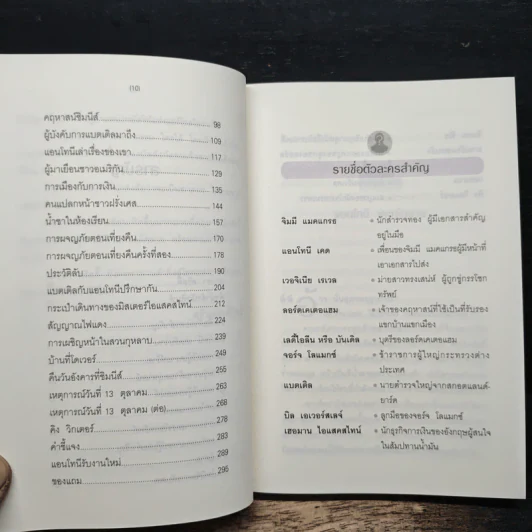 กด
คฤหาสน์ชิมนีส์ 98
ผู้บังคับการแบตเติลมาถึง 109
แอนโทนีเล่าเรื่องของเขา 117
ผู้มาเยือนชาวอเมริกัน 129
การเมืองกับการเงิน 135
คนแปลกหน้าชาวฝรั่งเศส 144
น้ำชาในห้องเรียน 157
การผจญภัยตอนเที่ยงคืน 170
การผจญภัยตอนเที่ยงคืนครั้งที่สอง 178
ประวัติลับ 190
แบตเติลกับแอนโทนีปรึกษากัน 204
กระเป๋าเดินทางของมิสเตอร์ไอแสคสไตน์ 212
สัญญาณไฟแดง 224
การเผชิญหน้าในสวนกุหลาบ 239
บ้านที่โดเวอร์ 249
คืนวันอังคารที่ชิมนีส์ 255
เหตุการณ์วันที่ 13 ตุลาคม 263
เหตุการณ์วันที่ 13 ตุลาคม (ต่อ) 268
คิง วิกเตอร์ 278
คำชี้แจง 283
แอนโทนีรับงานใหม่ 289
ของแถม 295
รายชื่อตัวละครสำคัญ
จิมมี่ แมคแกรธ • นักสำรวจทอง ผู้มีเอกสารสำคัญ
อยู่ในมือ
แอนโทนี เคด • เพื่อนของจิมมี่ แมคแกรธผู้มีหน้าที่
เอาเอกสารไปส่ง
เวอจิเนีย เรเวล • ม่ายสาวทรงเสน่ห์ ผู้ถูกขู่กรรโชก
ทรัพย์
ลอร์ดเคเตอแฮม • เจ้าของคฤหาสน์ที่ใช้เป็นที่รับรอง
แขกบ้านแขกเมือง
เลดี้ไอลีน หรือ บันเดิล • บุตรีของลอร์ดเคเตอแฮม
จอร์จ โลแมกซ์ • ข้าราชการผู้ใหญ่กระทรวงต่าง
ประเทศ
แบตเติล • นายตำรวจใหญ่จากสกอตแลนด์-
ยาร์ด
บิล เอเวอร์สเลจ์ • ลูกมือของจอร์จ โลแมกซ์
เฮอมาน ไอแสคสไตน์ • นักธุรกิจการเงินของอังกฤษผู้สนใจ
ในสัมปทานน้ำมัน